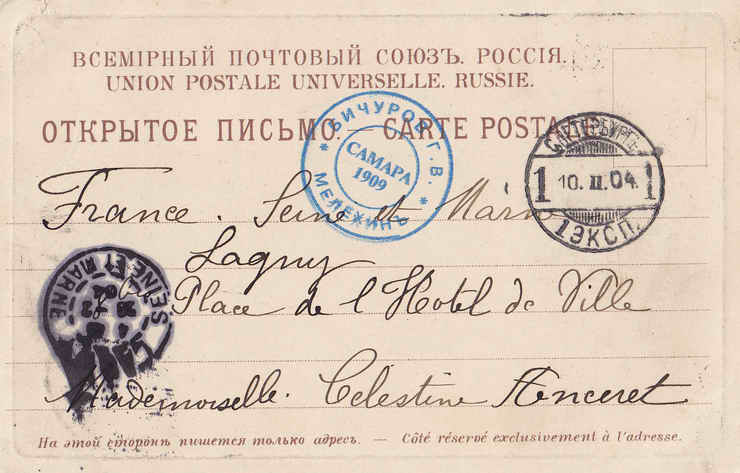 ВСЕМІРНЫЙ ПОЧТОВЫЙ СОЮЗЪ. РОССІЯ.
UNION POSTALE UNIVERSELLE. RUSSIE.
ОТКРЫТОЕ ПИСЬМО. — CARTE POSTALE
* БИЧУРОВ Г.В. *
САМАРА
1909
МЕЛЕХИНЪ
С.ПЕТЕРБУРГЪ
1 10.II.04. 1
1 ЭКСП.
France. Seine et Marne
Lagny
Place de l'Hotel de Ville
Mademoiselle. Celestine
SEINE ET MARNE
На этой сторонѣ пишется только адресъ. — Côté réservé exclusivement à l'adresse.